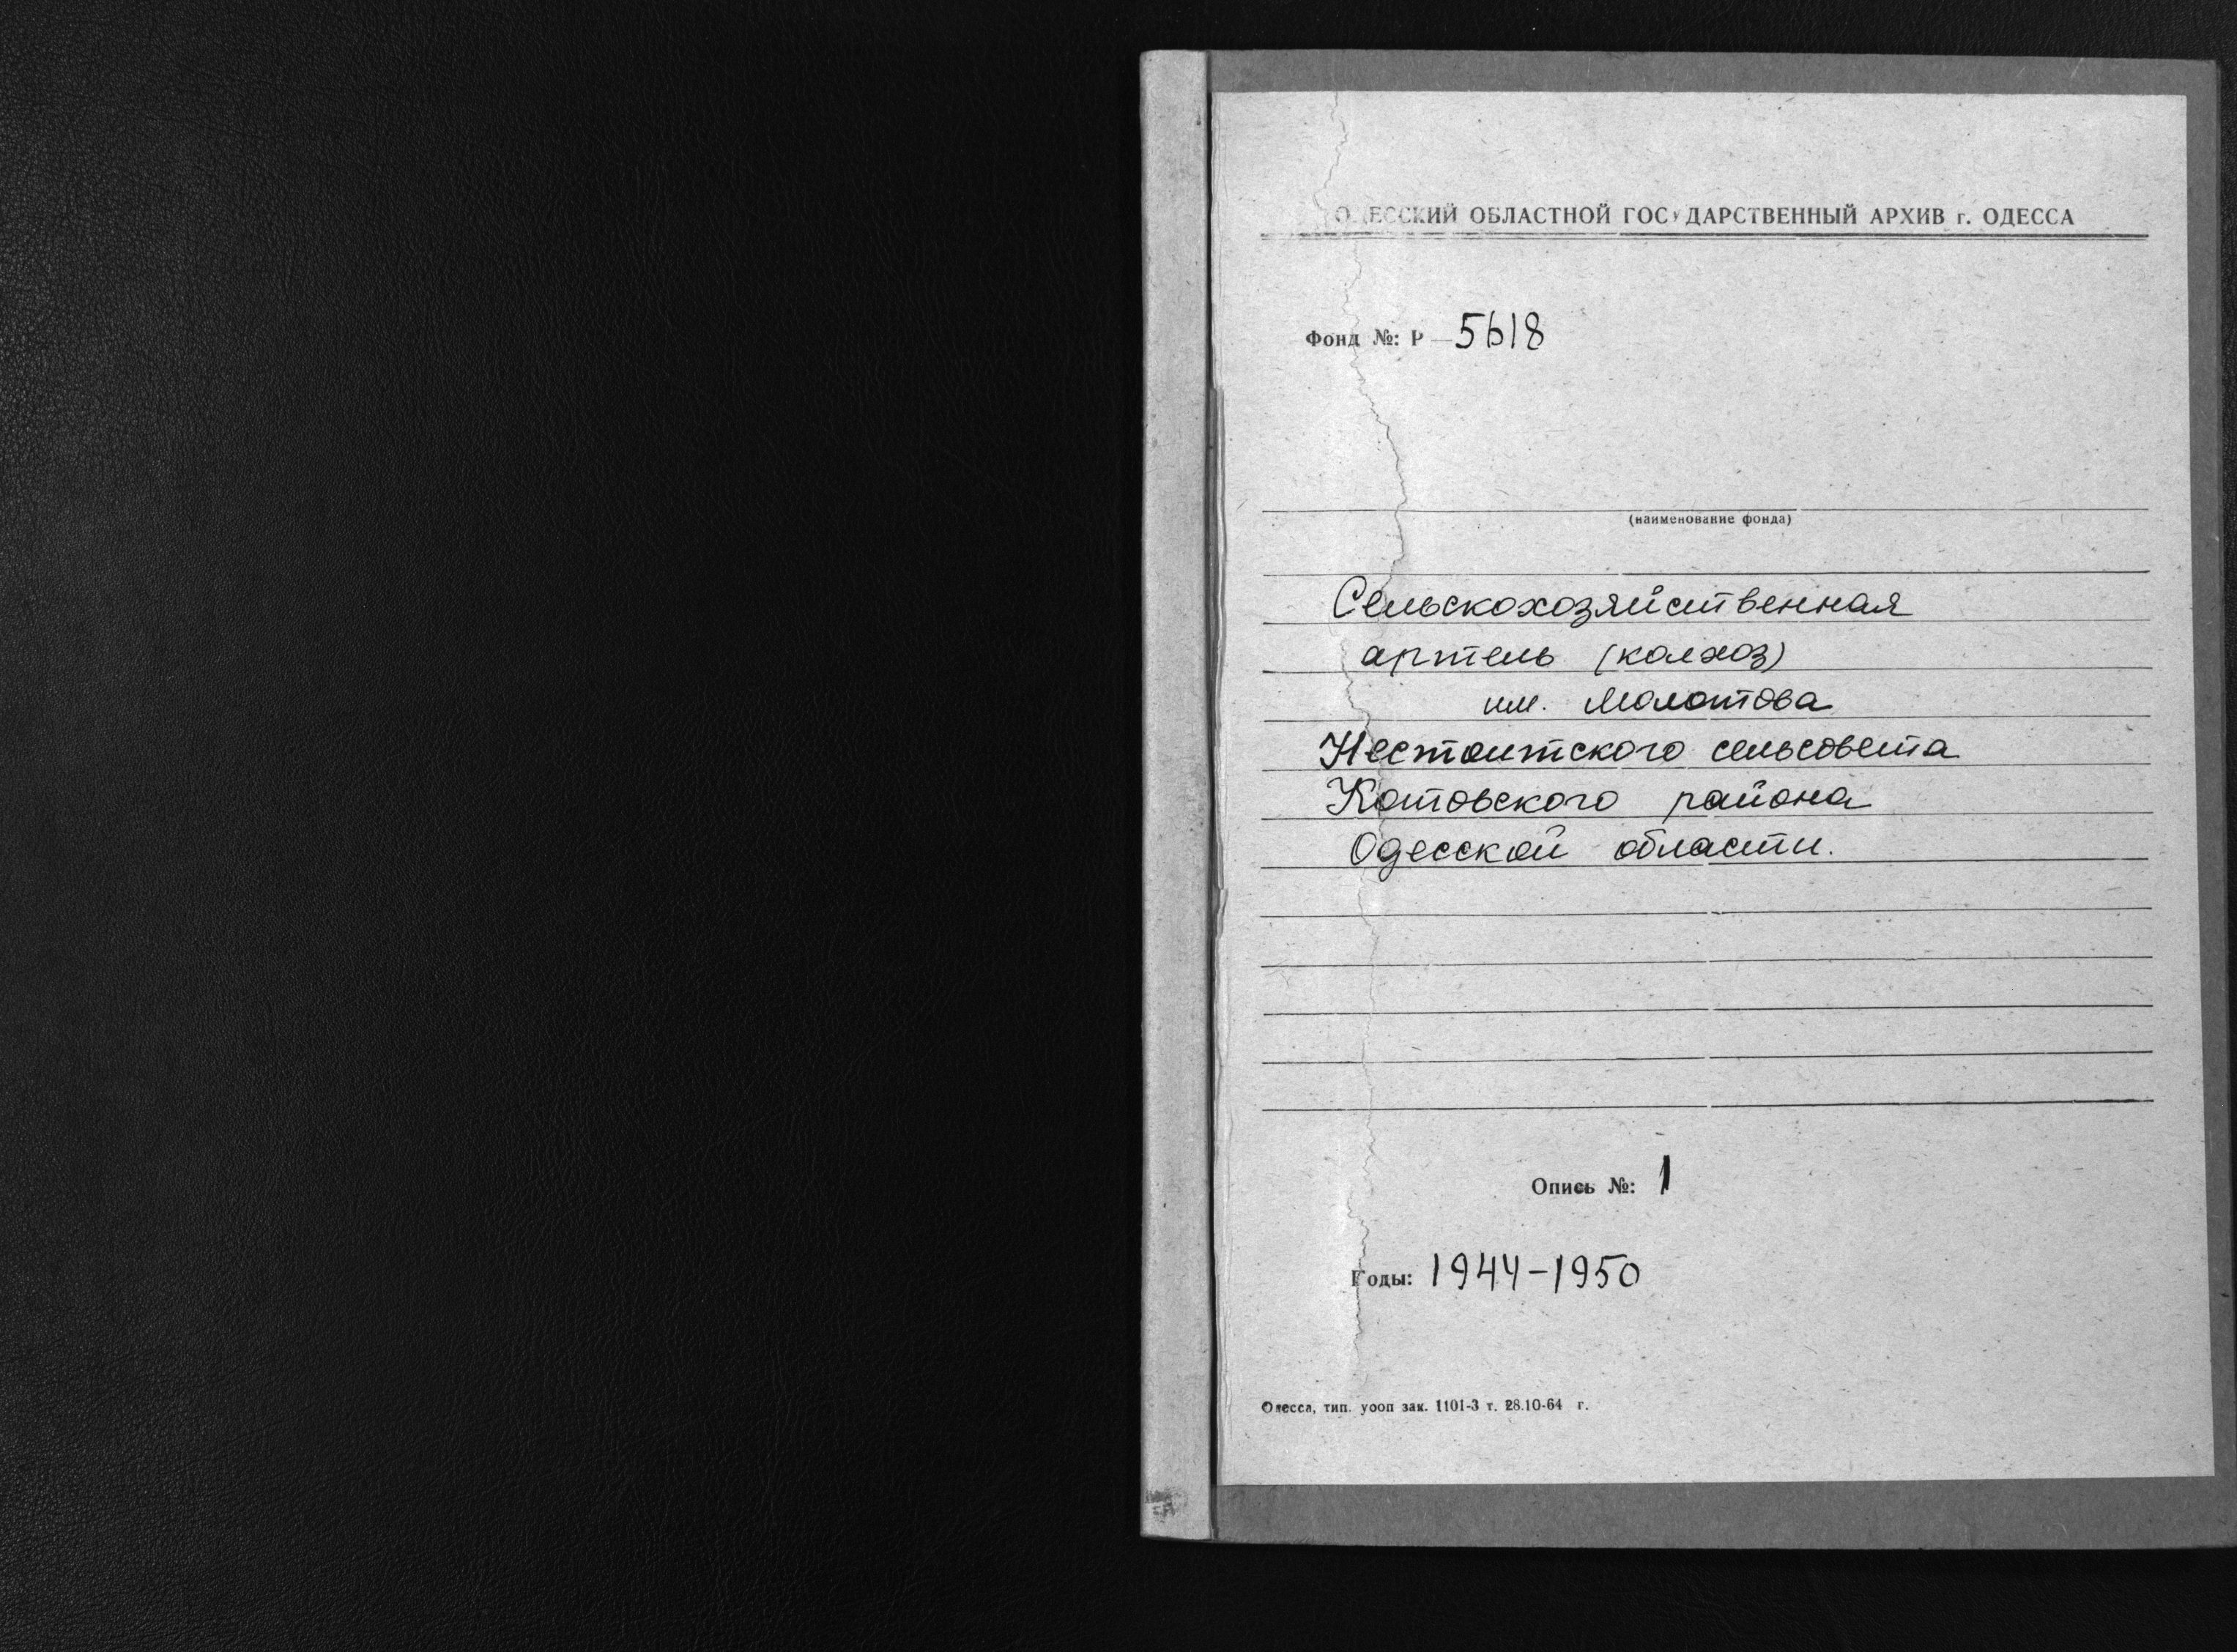 ОДЕССКИЙ ОБЛАСТНОЙ ГОСУДАРСТВЕННЫЙ АРХИВ г. ОДЕССА
Фонд №: Р — 5618
(наименование фонда)
Сельскохозяйственная
артель (колхоз)
им. Молотова
Нестоитского сельсовета
Котовского района
Одесской области.
Опись №: 1
Годы: 1944-1950
Одесса, тип. уооп зак. 1101-3 т. 28.10-64 г.